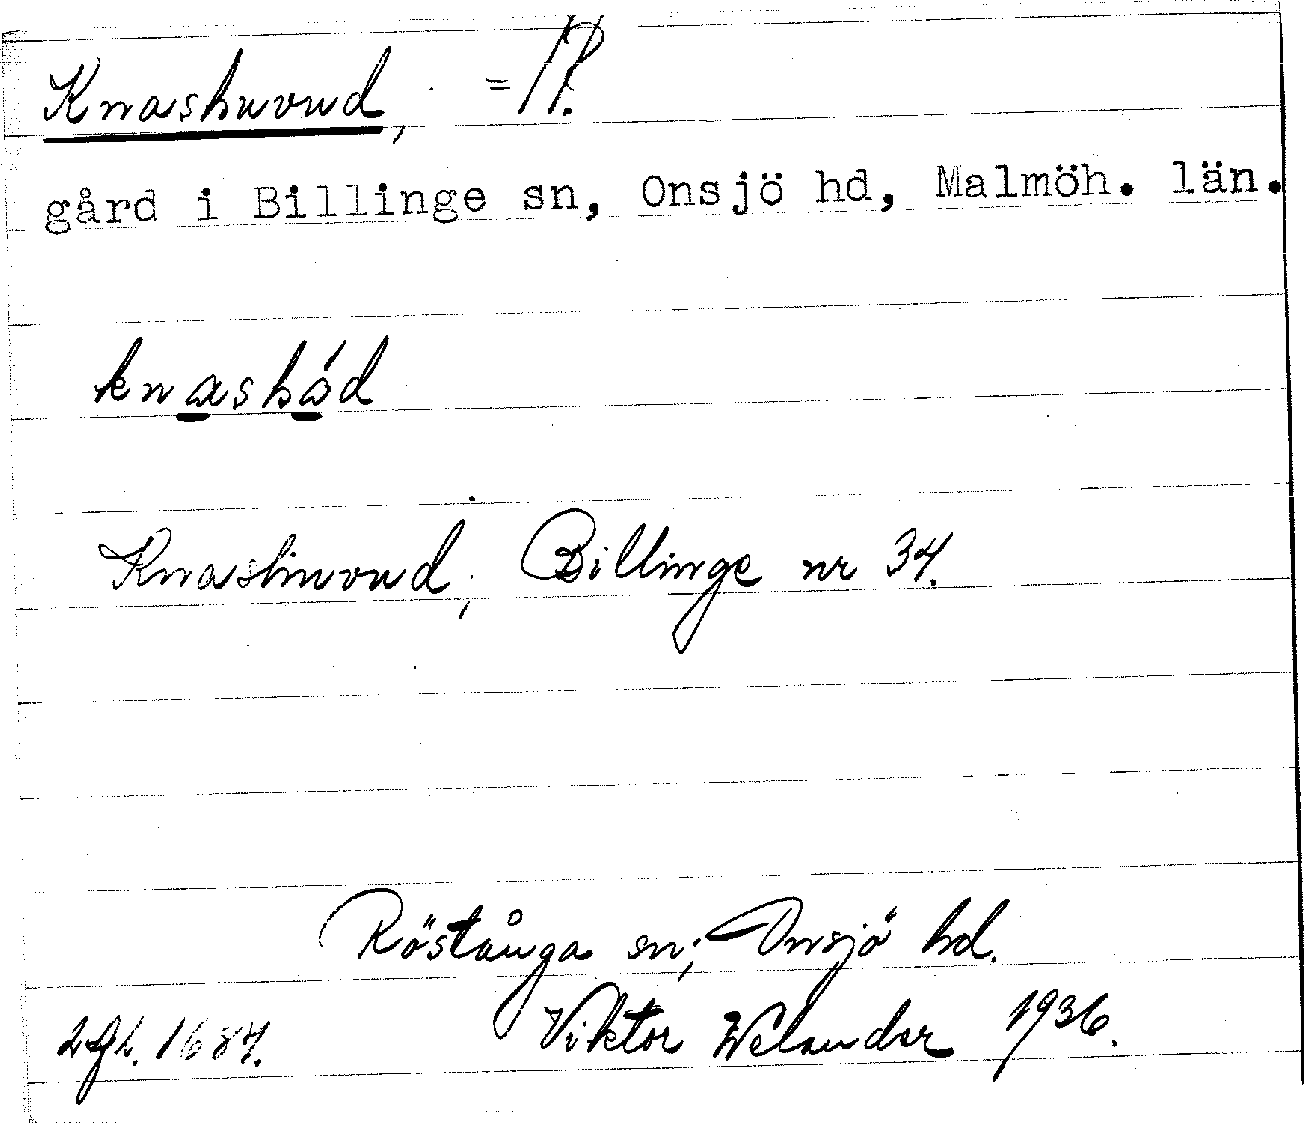 Knashuvud,
gård i Billinge sn, Onsjö hd, Malmöh. län.
knashód
Knashuvud, Billinge nr 34.
Röstånga sn; Onsjö hd.
Viktor Welander 1936.